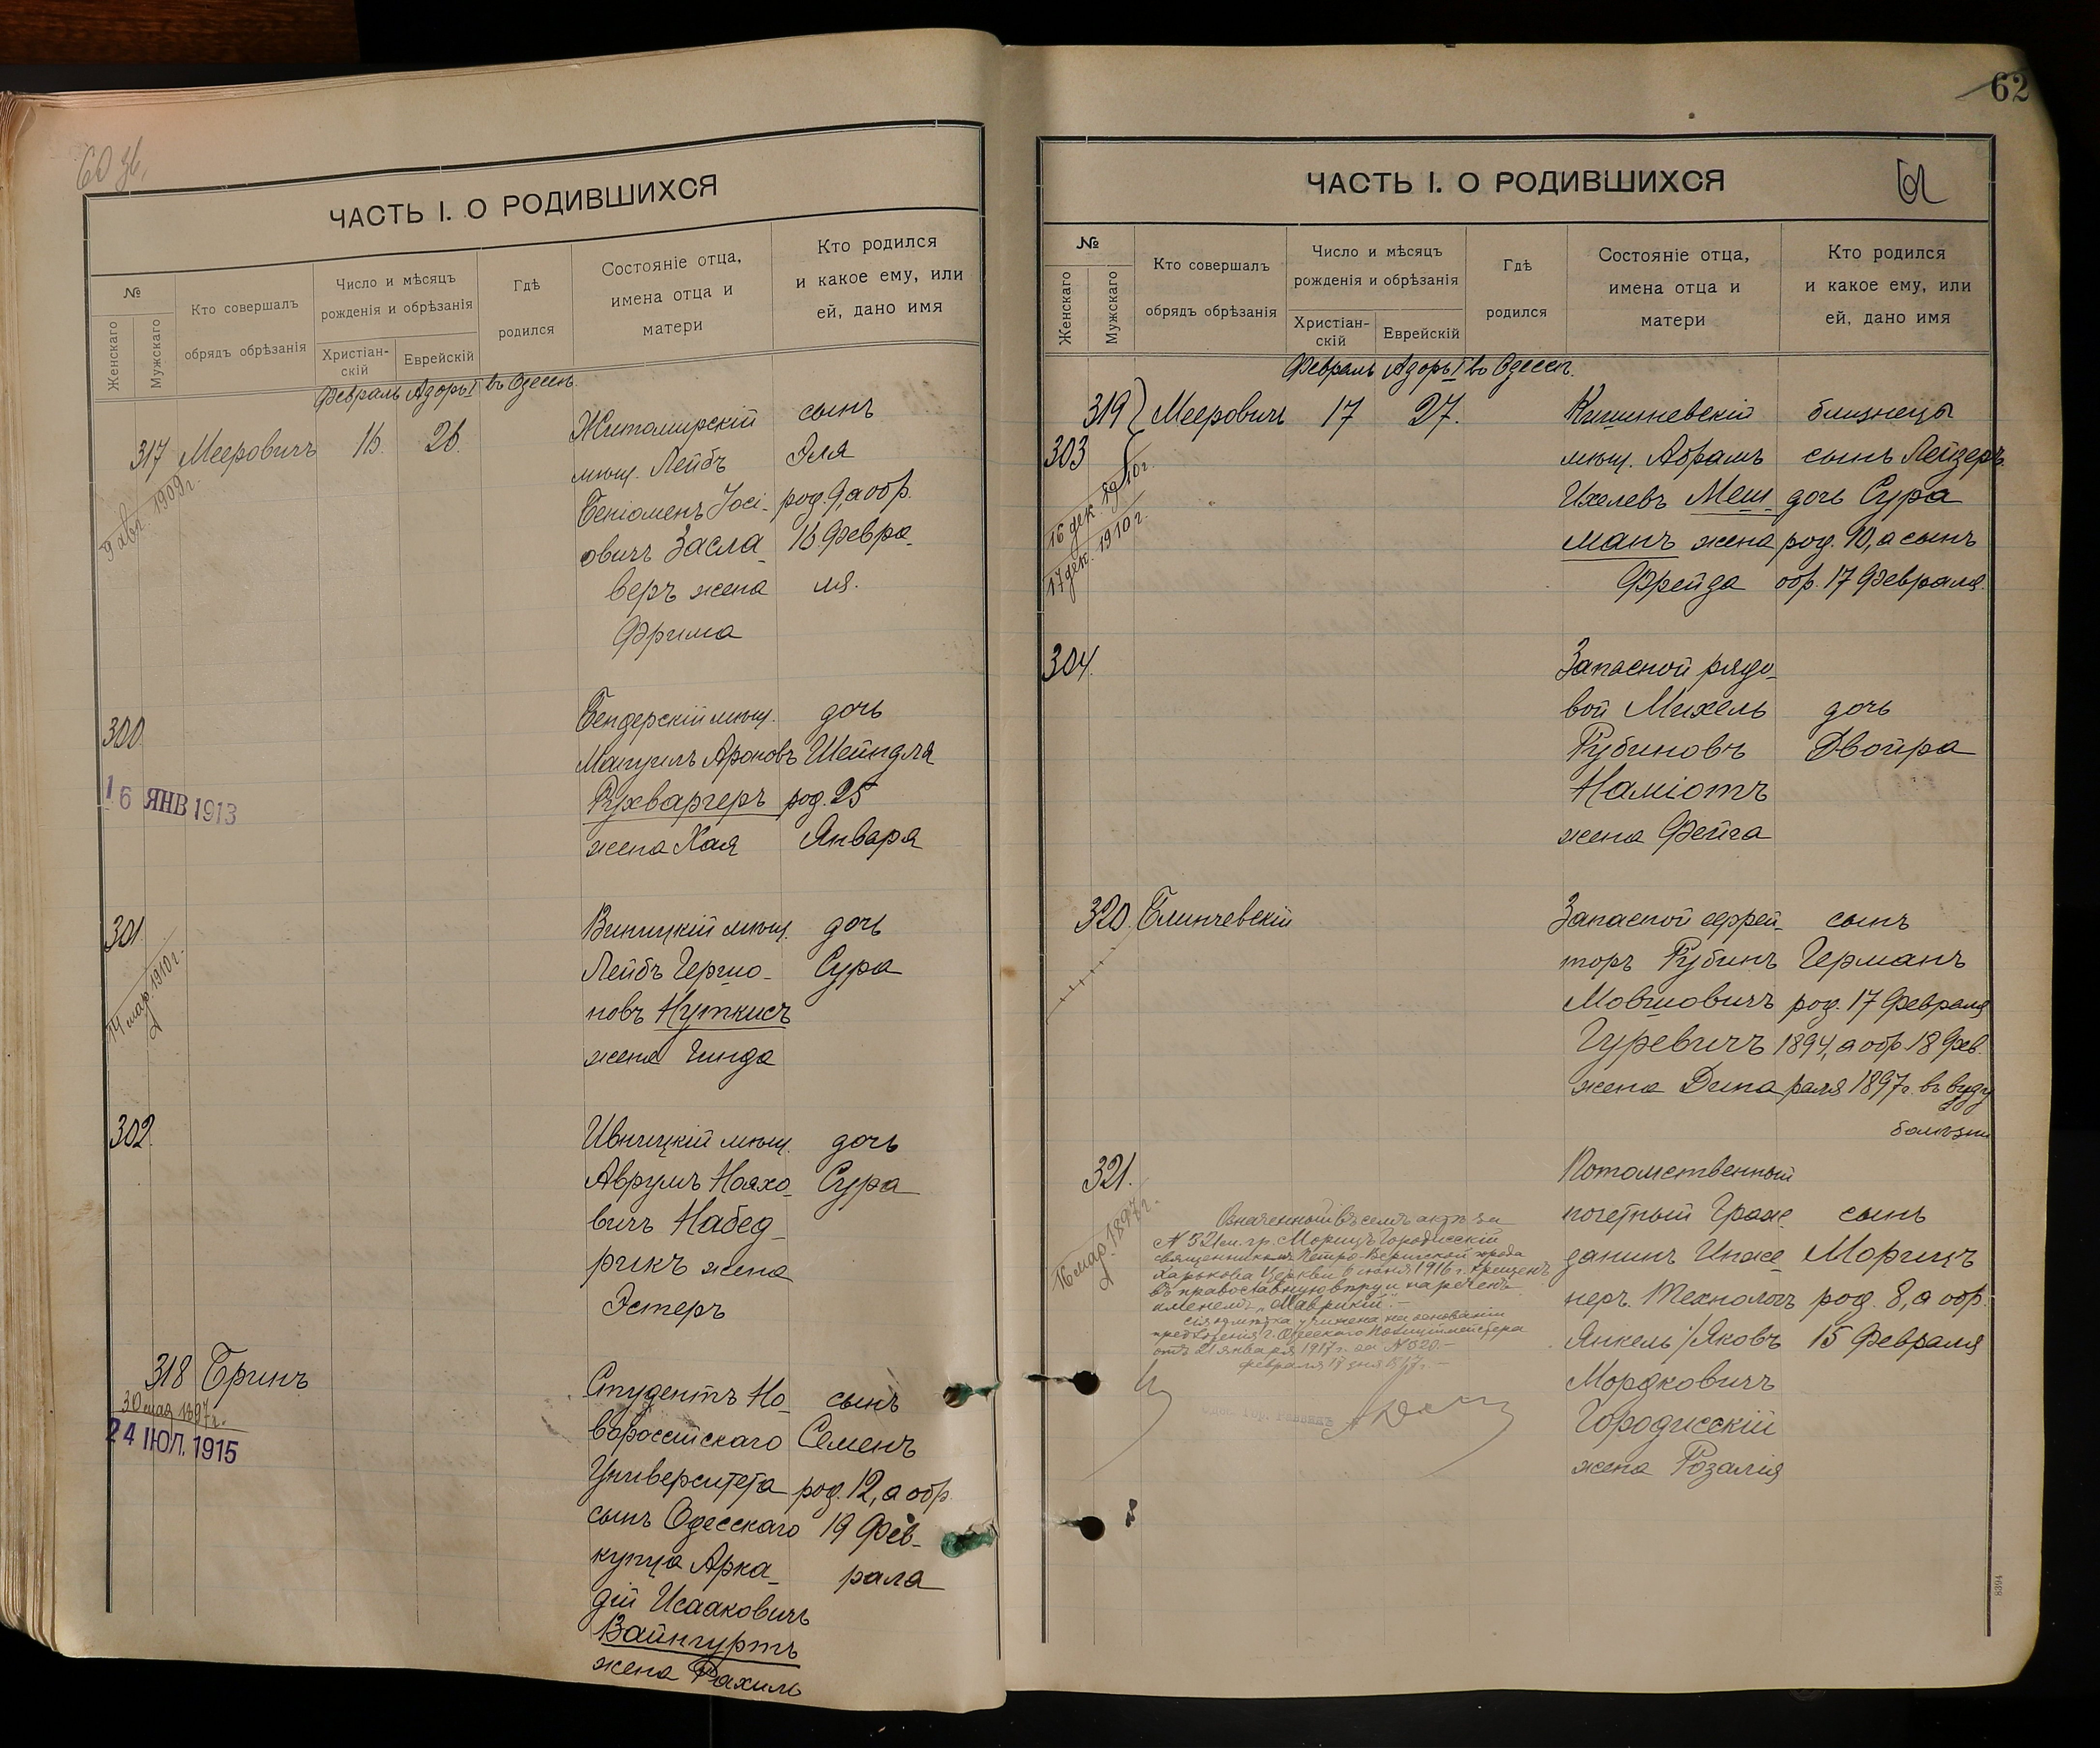 60 зв.
ЧАСТЬ I. О РОДИВШИХСЯ
№
Женскаго
Мужскаго
Кто совершалъ
обрядъ обрѣзанія
Число и мѣсяцъ
рожденія и обрѣзанія
Христіан-
скій
Еврейскій
Гдѣ
родился
Состояніе отца,
имена отца и
матери
Кто родился
и какое ему, или
ей, дано имя
Февраль Адоръ I въ Одессѣ.
317 Мееровичъ 16. 26. Житомирскій сынъ
мѣщ. Лейбъ Эля
Беніоменъ Іосі- род. 9, а обр.
овичъ Засла- 16 Февра-
веръ жена ля.
Фрима
9 авг. 1909 г.
300. Бендерскій мѣщ. дочь
Манулъ Ароновъ Шейндля
Рухваргеръ род. 25
жена Хая Января
16 ЯНВ 1913
301. Виницкій мѣщ. дочь
Лейбъ Гершо- Сура
новъ Нуткисъ
жена Гинда
14 мар. 1910 г.
302. Ивницкій мѣщ. дочь
Аврумъ Нояхо- Сура
вичъ Набед-
рикъ жена
Эстеръ
318 Бринъ Студентъ Но- сынъ
вороссійскаго Семенъ
Университета род. 12, а обр.
сынъ Одесскаго 19 Фев-
купца Арка- раля
дій Исааковичъ
Вайнгуртъ
жена Рахиль
30 мая 1897 г.
24 ІЮЛ. 1915
62
61
ЧАСТЬ I. О РОДИВШИХСЯ
№
Женскаго
Мужскаго
Кто совершалъ
обрядъ обрѣзанія
Число и мѣсяцъ
рожденія и обрѣзанія
Христіан-
скій
Еврейскій
Гдѣ
родился
Состояніе отца,
имена отца и
матери
Кто родился
и какое ему, или
ей, дано имя
Февраль Адоръ I въ Одессѣ.
319 Мееровичъ 17 27. Кишиневскій близнецы
303 мѣщ. Абрамъ сынъ Лейзеръ
Ихелевъ Меш- дочь Сура
манъ жена род. 10, а сынъ
Фрейда обр. 17 Февраля.
16 дек. 1910 г.
17 дек. 1910 г.
304. Запасной рядо-
вой Михель дочь
Рубиновъ Двойра
Наміотъ
жена Фейга
320. Блинчевскій Запасной ефрей- сынъ
торъ Рубинъ Германъ
Мовшовичъ род. 17 Февраля
Гуревичъ 1894, а обр. 18 Фев-
жена Дина раля 1897 г. въ виду
болѣзни
321. Потомственный
почетный Граж- сынъ
данинъ Инже- Морицъ
неръ. Технологъ род. 8, а обр.
Янкель /Яковъ 15 Февраля
Мордковичъ
Городисскій
жена Розалія
16 мар. 1897 г.
Означенный въ семъ актѣ за
N 321 м. гр. Морицъ Городисскій
священникомъ Петро-Веригской города
Харькова Церкви 6 іюня 1916 г. крещенъ
въ православную вѣру и нареченъ
именемъ „Маврикій“.—
Сія отмѣтка учинена на основаніи
предложенія Г. Одесскаго Полиціймейстера
отъ 21 января 1917 г. за N 520.—
февраля 18 дня 1917 г.—
Одес. Гор. Раввинъ
8394